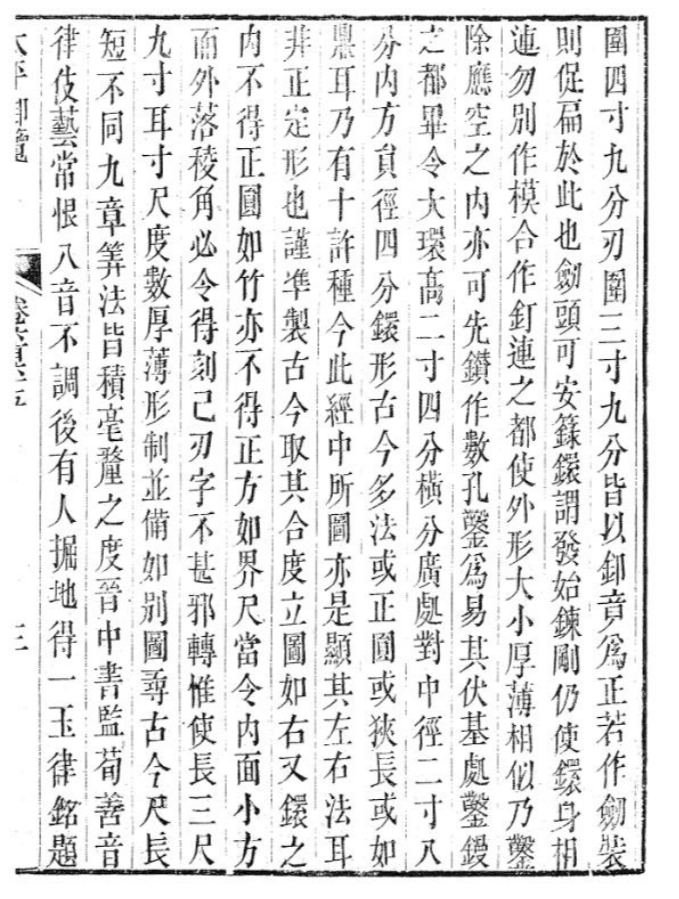 圍四寸九分刃圍三寸九分皆以卸賁爲正若作劒裝
則促匾於此也劒頭可安籙鐶謂發始鍊剛仍使鐶身相
連勿別作模合作釘連之都使外形大小厚薄相似乃鑿
除應空之內亦可先鑽作數孔鑿爲易其伏基處鑿鏝
之都畢令大環高二寸四分橫分廣處對中徑二寸八
分內方負徑四分鐶形古今多法或正圓或狹長或如
鼎耳乃有十許種今此經中所圖亦是顯其左右法耳
非正定形也謹準製古今取其合度立圖如右又鐶之
內不得正圓如竹亦不得正方如界尺當令內面小方
面外落稜角必令得刻己刃字不甚邪轉惟使長三尺
九寸耳寸尺度數厚薄形制並備如別圖尋古今尺長
短不同九章筭法皆積毫釐之度晉中書監荀善音
律伎藝常恨八音不調後有人掘地得一玉律銘題
太平御覽 卷六百六十五 三